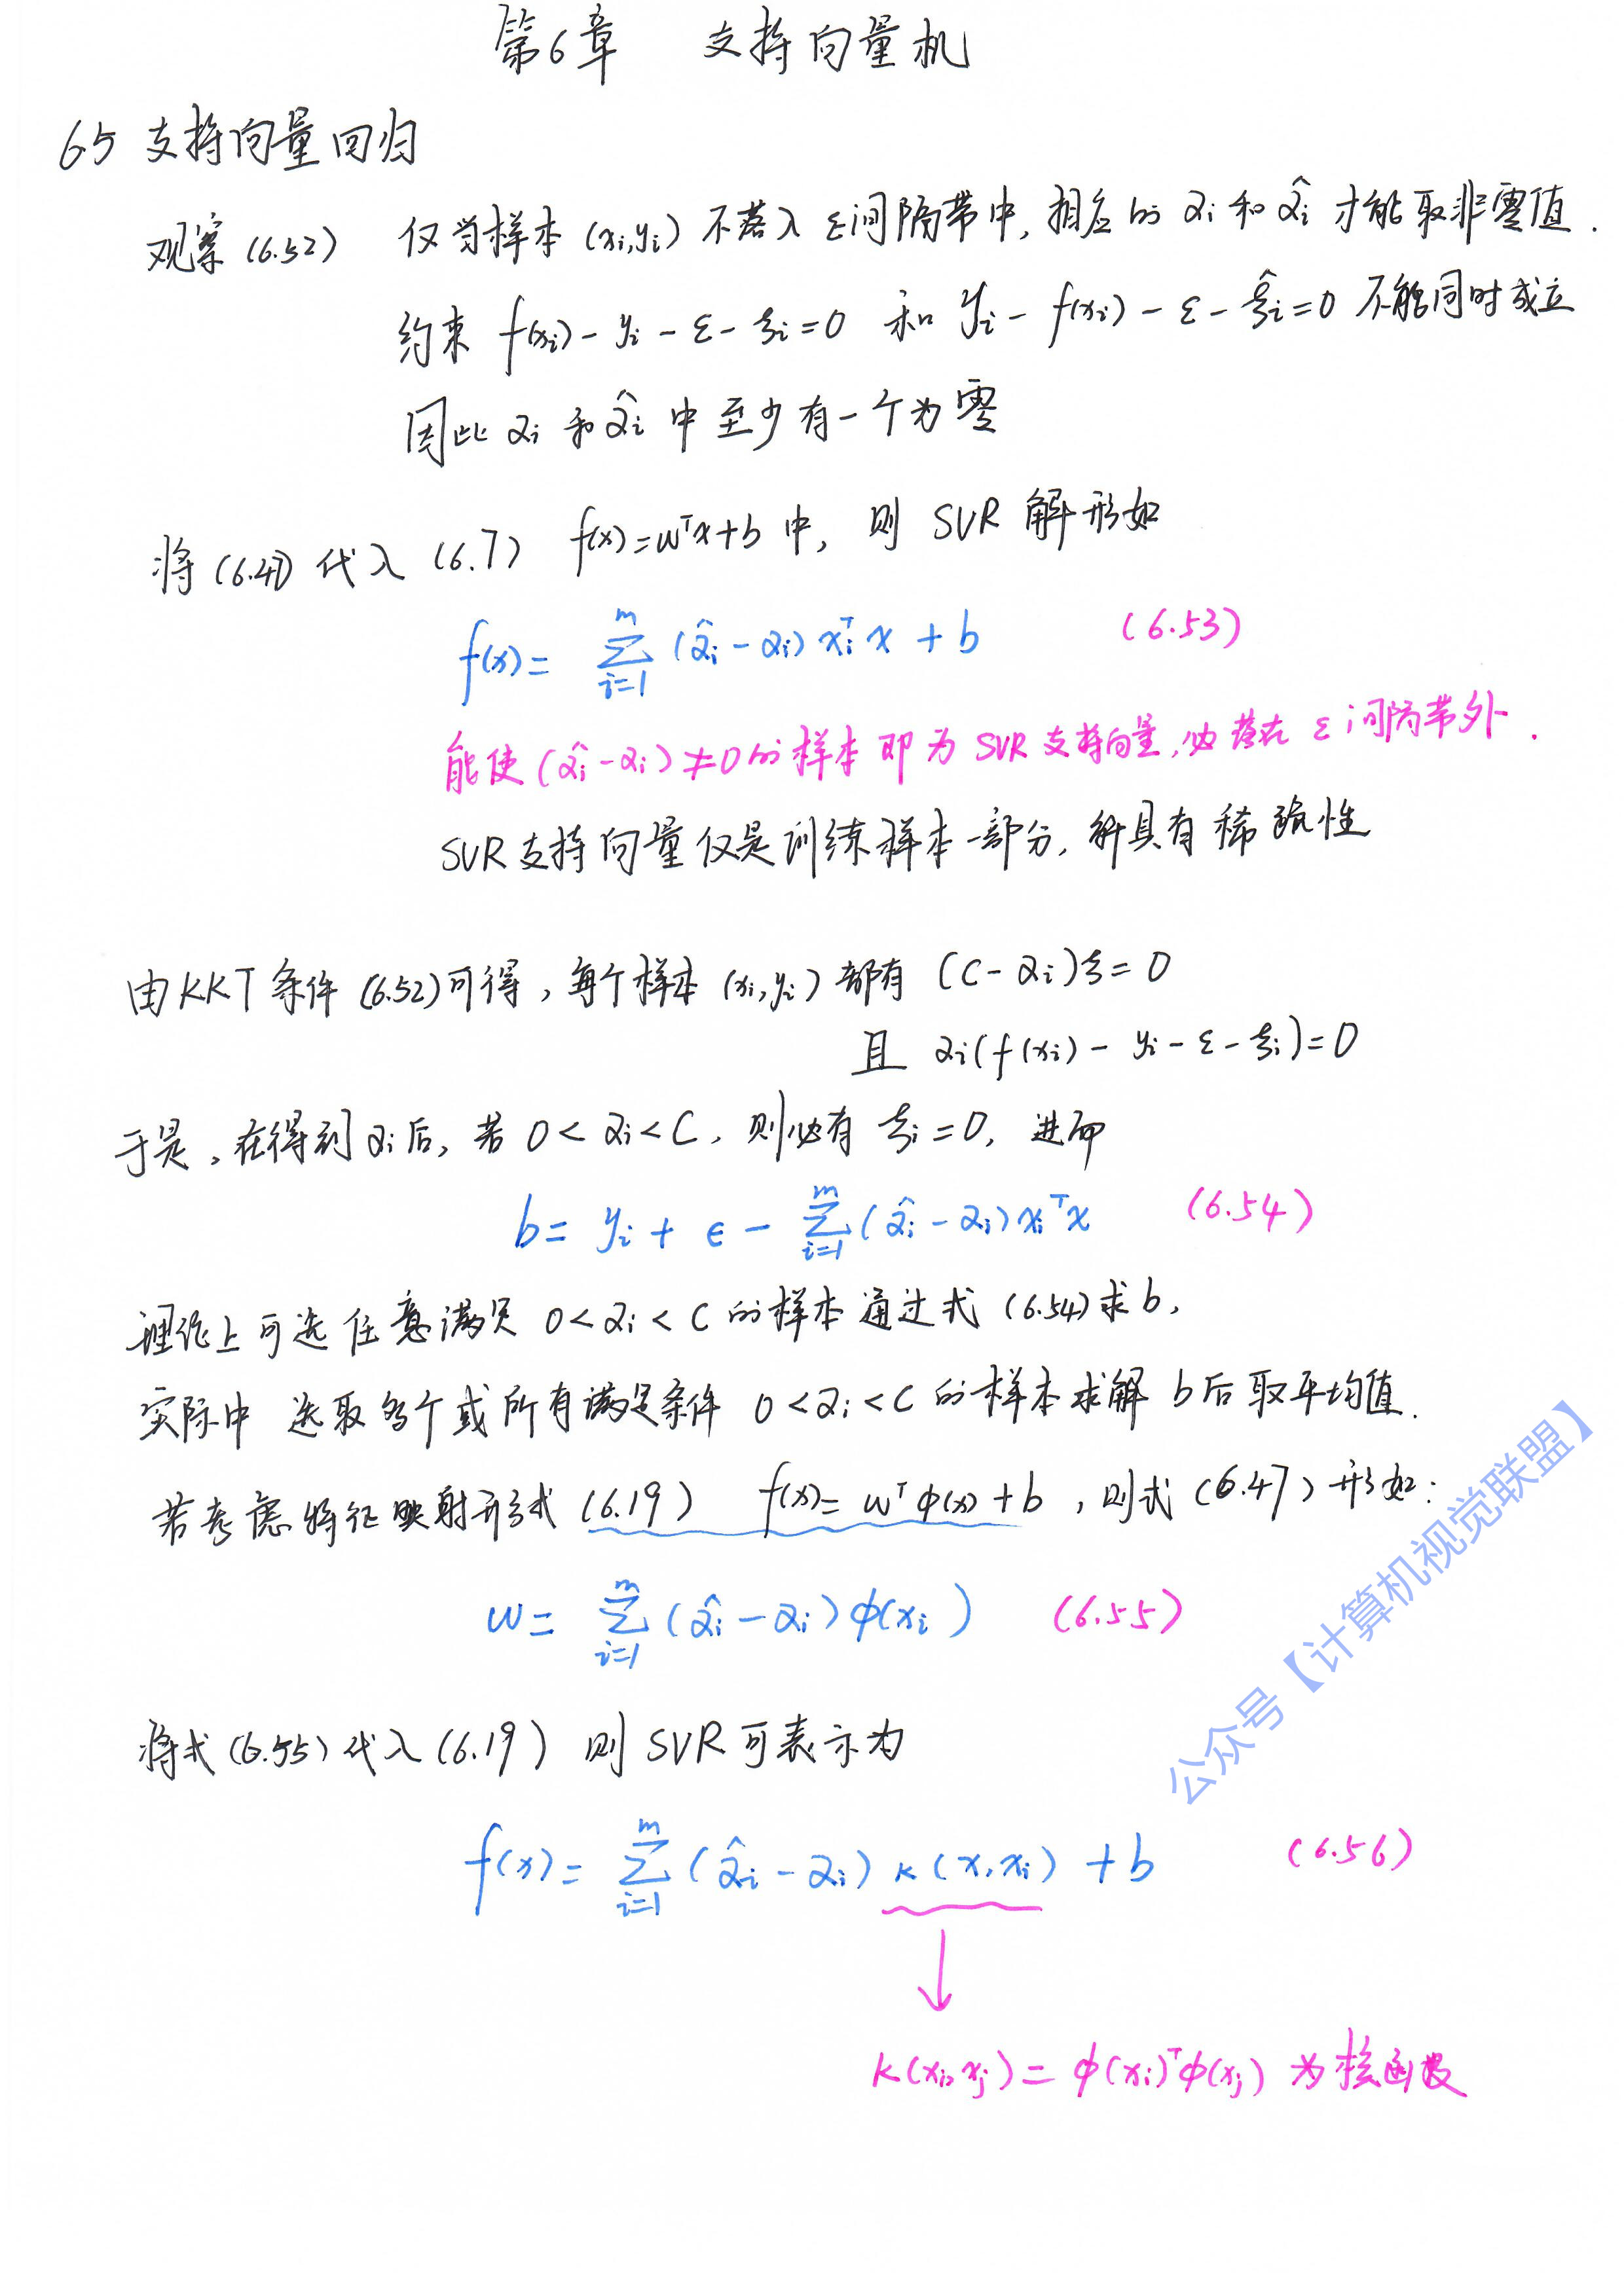 第6章 支持向量机
6.5 支持向量回归
观察(6.52) 仅当样本(xi,yi)不落入ε间隔带中,相应的αi和α̂i才能取非零值.
约束 f(xi)-yi-ε-ξi=0 和 yi-f(xi)-ε-ξ̂i=0 不能同时成立
因此αi和α̂i中至少有一个为零
将(6.47)代入(6.7) f(x)=wᵀx+b中,则SVR解形如
f(x)= ∑_{i=1}^{m} (α̂i-αi)xiᵀx+b (6.53)
能使(α̂i-αi)≠0的样本即为SVR支持向量,必落在ε间隔带外.
SVR支持向量仅是训练样本一部分,解具有稀疏性
由KKT条件(6.52)可得,每个样本(xi,yi)都有(C-αi)ξ=0
且 αi(f(xi)-yi-ε-ξi)=0
于是,在得到αi后,若0<αi<C,则必有ξi=0,进而
b= yi+ϵ-∑_{i=1}^{m}(α̂i-αi)xiᵀx (6.54)
理论上可选任意满足0<αi<C的样本通过式(6.54)求b,
实际中 选取多个或所有满足条件0<αi<C的样本求解b后取平均值.
若考虑特征映射形式(6.19) f(x)=wᵀϕ(x)+b,则式(6.47)形如:
w= ∑_{i=1}^{m}(α̂i-αi)ϕ(xi) (6.55)
将式(6.55)代入(6.19)则SVR可表示为
f(x)= ∑_{i=1}^{m}(α̂i-αi)κ(x,xi)+b (6.56)
κ(xi,xj)=ϕ(xi)ᵀϕ(xj)为核函数
公众号【计算机视觉联盟】